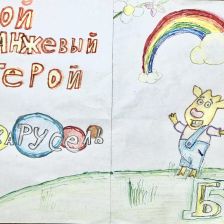 ОЙ
АНЖЕВЫЙ
ГЕРОЙ
КАРУСЕЛЬ
Б